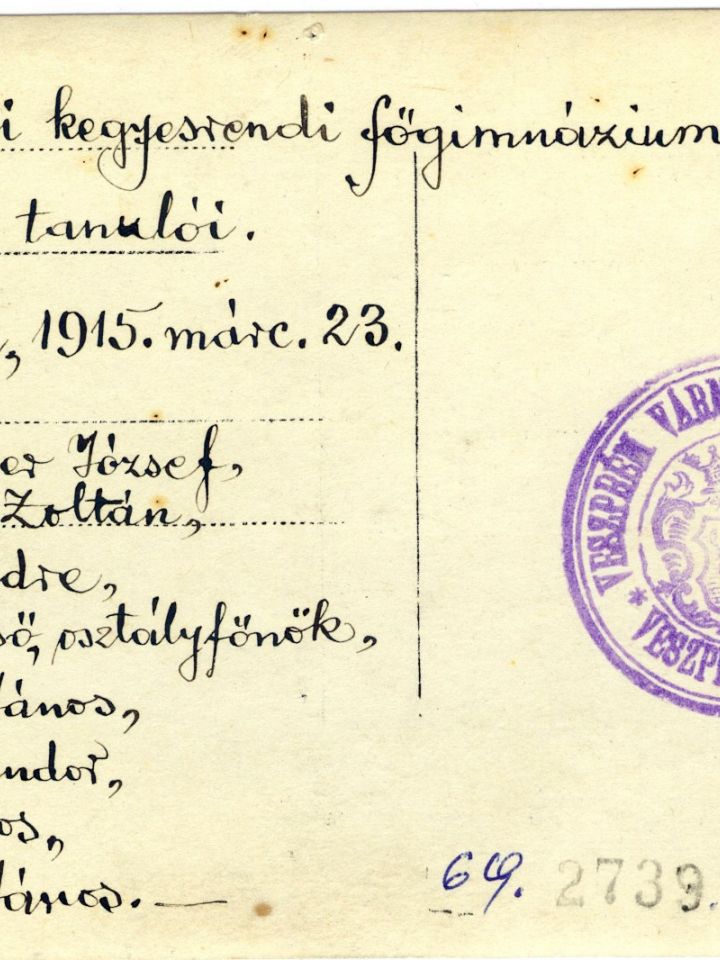 i kegyesrendi főgimnázium
tanulói.
, 1915. márc. 23.
er József,
Zoltán,
dre,
ső, osztályfőnök,
János,
ndor,
os,
János. —
VESZPRÉM VÁRM
* VESZPR
69. 2739.